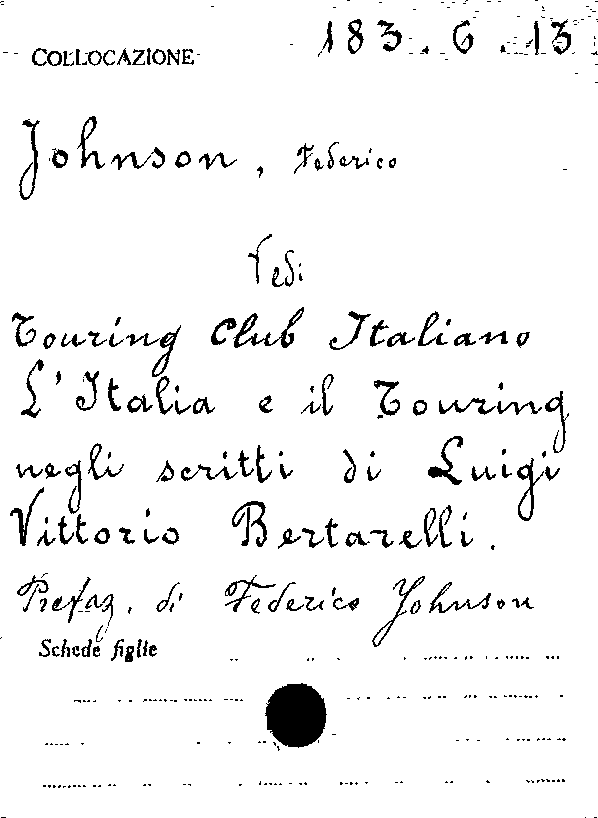 COLLOCAZIONE 183.6.13
Johnson, Federico
Vedi
Touring Club Italiano
L'Italia e il Touring
negli scritti di Luigi
Vittorio Bertarelli.
Prefaz. di Federico Johnson
Schede figlie